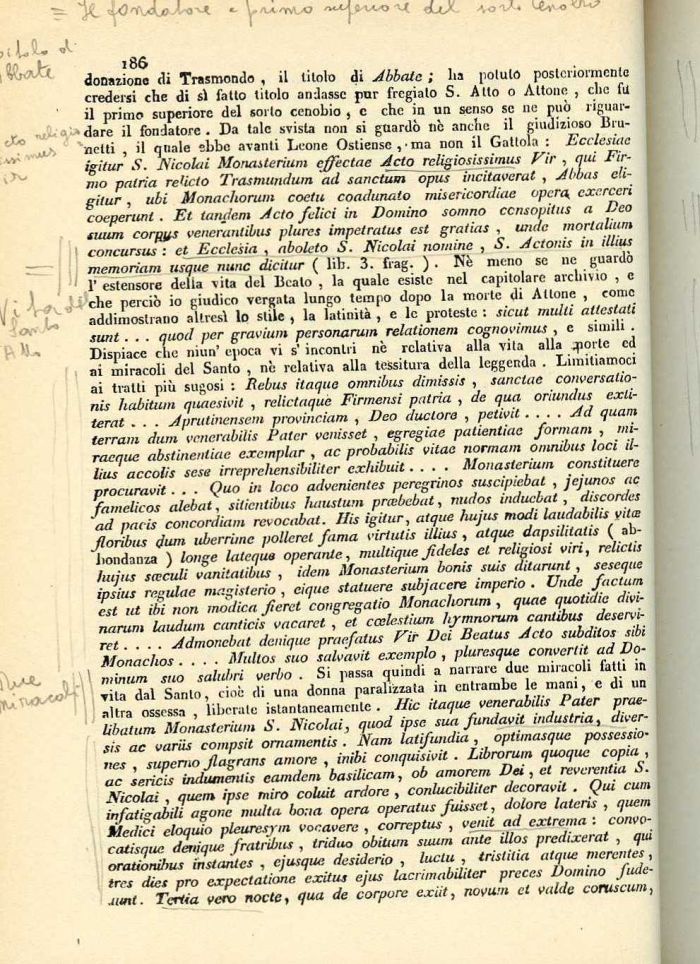 = Il fondatore e primo superiore del sorto Cenobio
titolo di
Abbate
186
donazione di Trasmondo, il titolo di Abbate; ha potuto posteriormente
credersi che di sì fatto titolo andasse pur fregiato S. Atto o Attone, che fu
il primo superiore del sorto cenobio, e che in un senso se ne può riguar-
dare il fondatore. Da tale svista non si guardò nè anche il giudizioso Bru-
netti, il quale ebbe avanti Leone Ostiense, ma non il Gattola: Ecclesiae
igitur S. Nicolai Monasterium effectae Acto religiosissimus Vir, qui Fir-
mo patria relicto Trasmundum ad sanctum opus incitaverat, Abbas eli-
gitur, ubi Monachorum coetu coadunato misericordiae opera exerceri
coeperunt. Et tandem Acto felici in Domino somno consopitus a Deo
suum corpus venerantibus plures impetratus est gratias, unde mortalium
concursus: et Ecclesia, aboleto S. Nicolai nomine, S. Actonis in illius
memoriam usque nunc dicitur ( lib. 3. frag. ). Nè meno se ne guardò
l'estensore della vita del Beato, la quale esiste nel capitolare archivio, e
che perciò io giudico vergata lungo tempo dopo la morte di Attone, come
addimostrano altresì lo stile, la latinità, e le proteste: sicut multi attestati
sunt... quod per gravium personarum relationem cognovimus, e simili.
Dispiace che niun' epoca vi s'incontri nè relativa alla vita alla morte ed
ai miracoli del Santo, nè relativa alla tessitura della leggenda. Limitiamoci
ai tratti più sugosi: Rebus itaque omnibus dimissis, sanctae conversatio-
nis habitum quaesivit, relictaque Firmensi patria, de qua oriundus exti-
terat... Aprutinensem provinciam, Deo ductore, petivit.... Ad quam
terram dum venerabilis Pater venisset, egregiae patientiae formam, mi-
raeque abstinentiae exemplar, ac probabilis vitae normam omnibus loci il-
lius accolis sese irreprehensibiliter exhibuit.... Monasterium constituere
procuravit... Quo in loco advenientes peregrinos suscipiebat, jejunos ac
famelicos alebat, sitientibus haustum præbebat, nudos induebat, discordes
ad pacis concordiam revocabat. His igitur, atque hujus modi laudabilis vitæ
floribus dum uberrime polleret fama virtutis illius, atque dapsilitatis ( ab-
bondanza ) longe lateque operante, multique fideles et religiosi viri, relictis
hujus sæculi vanitatibus, idem Monasterium bonis suis ditarunt, seseque
ipsius regulae magisterio, eique statuere subjacere imperio. Unde factum
est ut ibi non modica fieret congregatio Monachorum, quae quotidie divi-
narum laudum canticis vacaret, et cœlestium hymnorum cantibus deservi-
ret.... Admonebat denique praefatus Vir Dei Beatus Acto subditos sibi
Monachos.... Multos suo salvavit exemplo, pluresque convertit ad Do-
minum suo salubri verbo. Si passa quindi a narrare due miracoli fatti in
vita dal Santo, cioè di una donna paralizzata in entrambe le mani, e di un
altra ossessa, liberate istantaneamente. Hic itaque venerabilis Pater prae-
libatum Monasterium S. Nicolai, quod ipse sua fundavit industria, diver-
sis ac variis compsit ornamentis. Nam latifundia, optimasque possessio-
nes, superno flagrans amore, inibi conquisivit. Librorum quoque copia,
ac sericis indumentis eamdem basilicam, ob amorem Dei, et reverentia S.
Nicolai, quem ipse miro coluit ardore, conlucibiliter decoravit. Qui cum
infatigabili agone multa bona opera operatus fuisset, dolore lateris, quem
Medici eloquio pleuresym vocavere, correptus, venit ad extrema: convo-
catisque denique fratribus, triduo obitum suum ante illos predixerat, qui
orationibus instantes, ejusque desiderio, luctu, tristitia atque merentes,
tres dies pro expectatione exitus ejus lacrimabiliter preces Domino fude-
runt. Tertia vero nocte, qua de corpore exiit, novum et valde coruscum,
Acto religio
sissimus
vir
=
Vita del
Santo
Atto
Due
miracoli